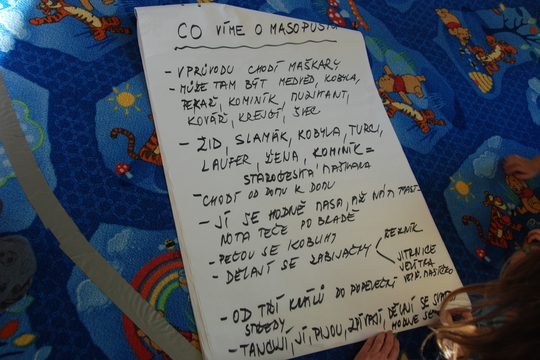 CO VÍME O MASOPUSTU
- V PRŮVODU CHODÍ MAŠKARY
- MŮŽE TAM BÝT MEDVĚD, KOBYLA,
PEKAŘ, KOMINÍK, MUZIKANT,
KOVÁŘ, KREJČÍ, ŠVEC
- ŽID, SLAMÁK, KOBYLA, TURCI,
LAUFER, ŽENA, KOMINÍK =
STAROČESKÁ MAŠKARA
- CHODÍ OD DOMU K DOMU
- JÍ SE HODNĚ MASA, AŽ NÁM MAST-
NOTA TEČE PO BRADĚ
- PEČOU SE KOBLIHY
- DĚLAJÍ SE ZABIJAČKY
ŘEZNÍK
JITRNICE
JELÍTKA
VEPŘ. MASÍČKO
- OD TŘÍ KRÁLŮ DO POPELEČNÍ
STŘEDY
- TANCUJÍ, JÍ, PIJOU, ZPÍVAJÍ, DĚLAJÍ SE
HODNĚ SE